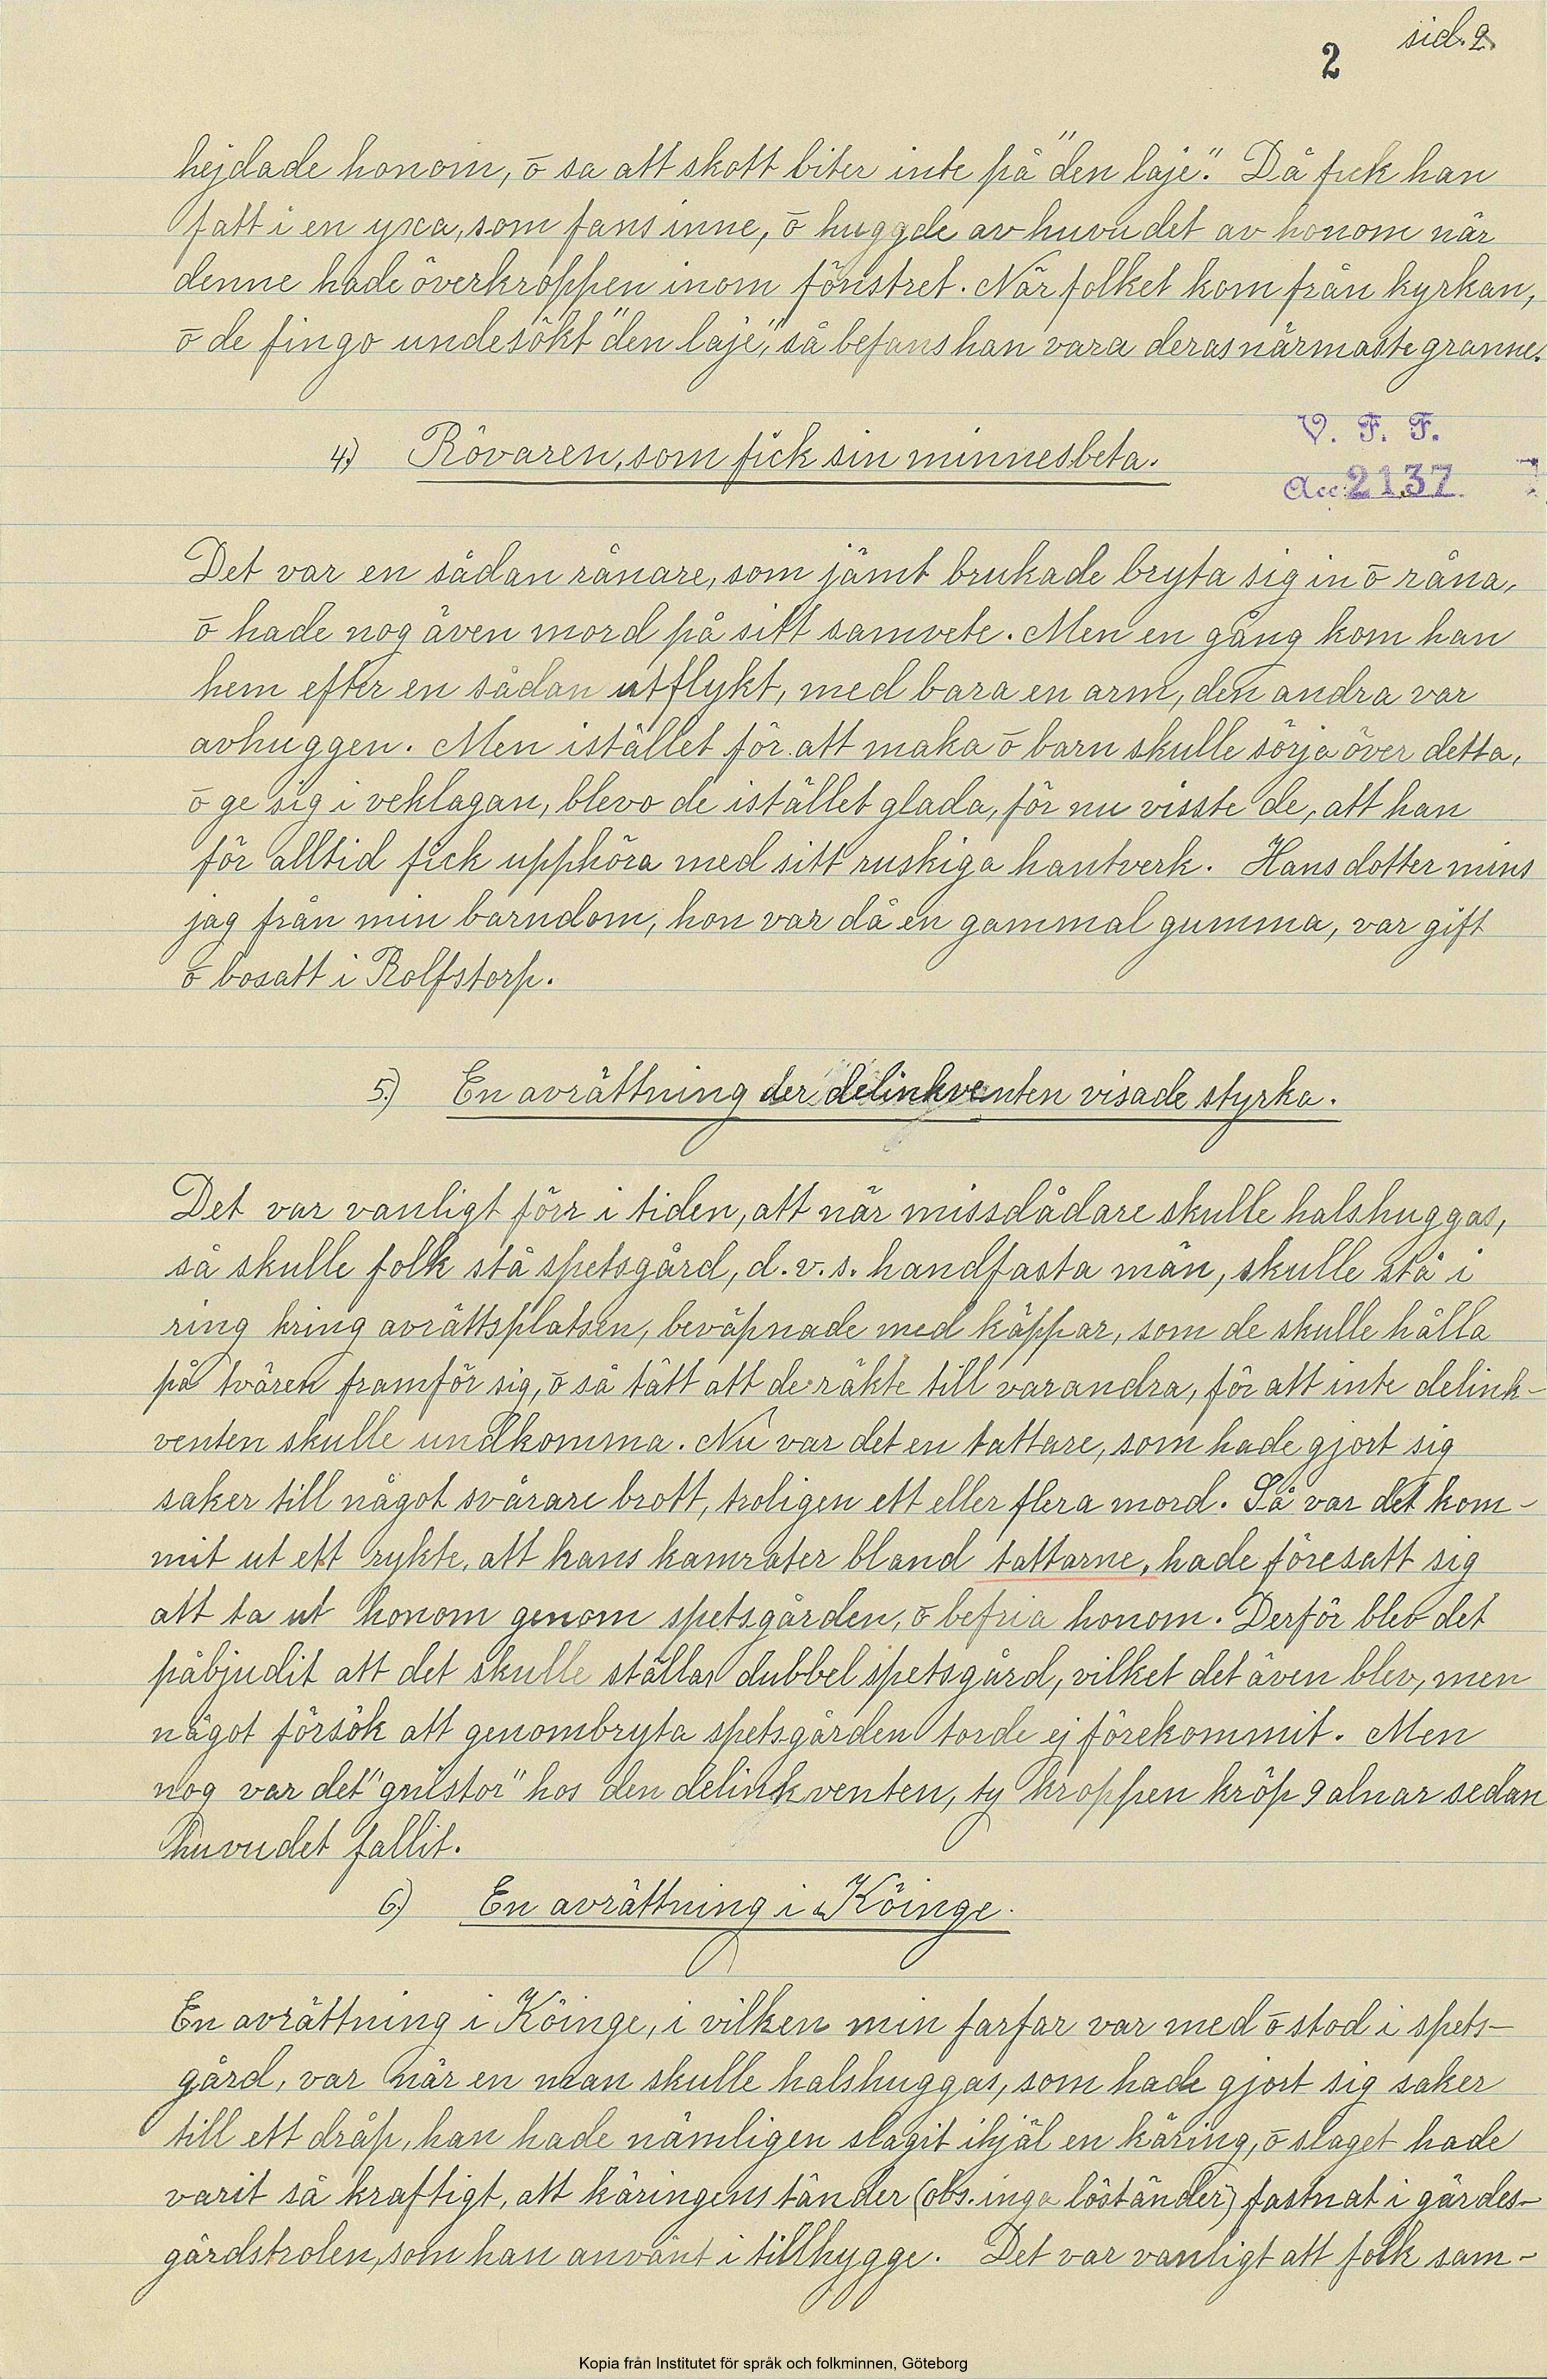 sid. 2.
2
hejdade honom, ō sa att skott biter inte på "den laje". Då fick han
fatt i en yxa, som fans inne, ō huggde av huvudet av honom när
denne hade överkroppen inom fönstret. När folket kom från kyrkan,
ō de fingo undesökt "den laje", så befans han vara deras närmaste granne.
V. F. F.
4.) Rövaren, som fick sin minnesbeta.
Acc. 2137
Det var en sådan rånare, som jämt brukade bryta sig in ō råna,
ō hade nog även mord på sitt samvete. Men en gång kom han
hem efter en sådan utflykt, med bara en arm, den andra var
avhuggen. Men istället för att maka ō barn skulle sörja över detta,
ō ge sig i veklagan, blevo de istället glada, för nu visste de, att han
för alltid fick upphöra med sitt ruskiga hantverk. Hans dotter mins
jag från min barndom, hon var då en gammal gumma, var gift
ō bosatt i Rolfstorp.
5.) En avrättning der delinkventen visade styrka.
Det var vanligt förr i tiden, att när missdådare skulle halshuggas,
så skulle folk stå spetsgård, d.v.s. handfasta män, skulle stå i
ring kring avrättsplatsen, beväpnade med käppar, som de skulle hålla
på tvären framför sig, ō så tätt att de räkte till varandra, för att inte delink-
venten skulle undkomma. Nu var det en tattare, som hade gjort sig
saker till något svårare brott, troligen ett eller flera mord. Så var det kom-
mit ut ett rykte, att hans kamrater bland tattarne, hade föresatt sig
att ta ut honom genom spetsgården, ō befria honom. Derför blev det
påbjudit att det skulle ställas dubbel spetsgård, vilket det även blev, men
något försök att genombryta spetsgården torde ej förekommit. Men
nog var det "gnistor" hos den delinkventen, ty kroppen kröp 9 alnar sedan
huvudet fallit.
6.) En avrättning i Köinge.
En avrättning i Köinge, i vilken min farfar var med ō stod i spets-
gård, var när en man skulle halshuggas, som hade gjort sig saker
till ett dråp, han hade nämligen slagit ihjäl en käring, ō slaget hade
varit så kraftigt, att käringens tänder (obs. inga löständer) fastnat i gärdes-
gårdstrolen, som han använt i tillhygge. Det var vanligt att folk sam-
Kopia från Institutet för språk och folkminnen, Göteborg